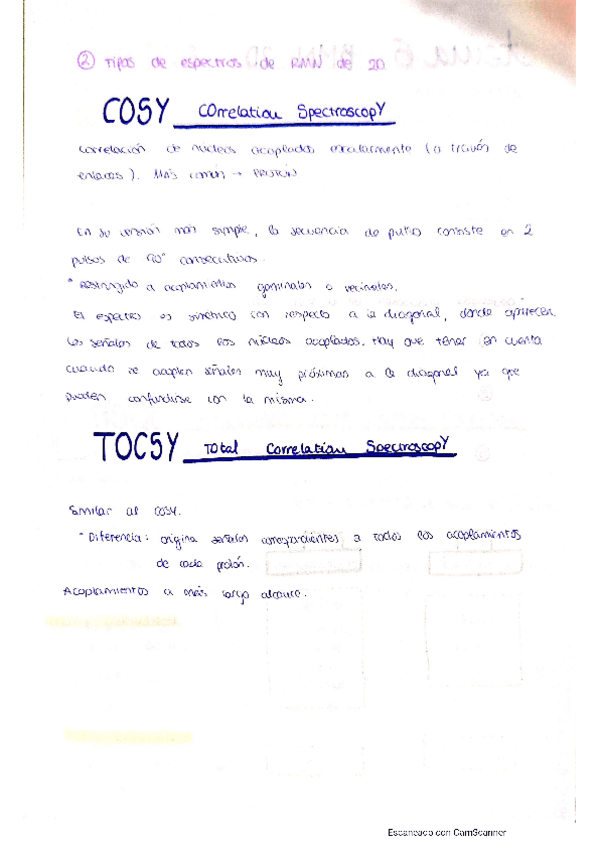 ② Tipos de espectros de RMN de 2D
COSY COrrelation SpectroscopY
correlación de núcleos acoplados escalarmente (a través de
enlaces). Más común → PROTÓN
En su versión más simple, la secuencia de pulso consiste en 2
pulsos de 90° consecutivos.
* Restringido a acoplamientos geminales o vecinales.
El espectro es simétrico con respecto a la diagonal, donde aparecen
las señales de todos los núcleos acoplados. Hay que tener en cuenta
cuando se acoplen señales muy próximas a la diagonal ya que
pueden confundirse con la misma.
TOCSY TOtal Correlation SpectroscopY
Similar al COSY.
* Diferencia: origina señales correspondientes a todos los acoplamientos
de cada protón.
Acoplamientos a más largo alcance.
Escaneado con CamScanner